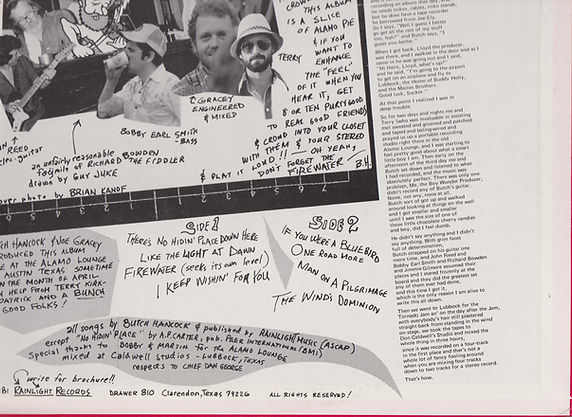 CROWD
THIS ALBUM
IS A SLICE
OF ALAMO PIE
& IF YOU
WANT TO
ENHANCE
THE "FEEL"
OF IT WHEN YOU
HEAR IT, GET
8 OR TEN PURTY GOOD
TO REAL GOOD FRIENDS
& CROWD INTO YOUR CLOSET
WITH THEM & YOUR STEREO
& PLAY IT LOUD!! — OH YEAH,
DON'T FORGET THE
FIREWATER B.H.
TERRY
GRACEY
ENGINEERED
& MIXED
BOBBY EARL SMITH
- BASS
REED
guitar
an unfairly reasonable
facsimile of RICHARD BOWDEN
THE FIDDLER
drawn by GUY JUKE
photo by BRIAN KANOF
7 6 5 4 3 2 1
HANCOCK & JOE GRACEY
PRODUCED THIS ALBUM
AT THE ALAMO LOUNGE
AUSTIN TEXAS, SOMETIME
THE MONTH OF APRIL
HELP FROM TERRY KIRK-
PATRICK AND A BUNCH
GOOD FOLKS!
SIDE 1
THERE'S NO HIDIN' PLACE DOWN HERE
LIKE THE LIGHT AT DAWN
FIREWATER (seeks its own level)
I KEEP WISHIN' FOR YOU
SIDE 2
IF YOU WERE A BLUEBIRD
ONE ROAD MORE
MAN ON A PILGRIMAGE
THE WIND'S DOMINION
all songs by BUTCH HANCOCK & published by RAINLIGHT MUSIC (ASCAP)
except "NO HIDIN' PLACE" by A.P. CARTER, pub. PEER INTERNATIONAL (BMI)
Special thanks to BOBBY & MARTIN for the ALAMO LOUNGE
mixed at Caldwell Studios - LUBBOCK, TEXAS
respects to CHIEF DAN GEORGE
write for brochure!!
81 RAINLIGHT RECORDS DRAWER 810 Clarendon, Texas 79226 ALL RIGHTS RESERVED!
recording an album that day, and
he needs mikes, cables, mike stands,
but he does have a tape recorder
he borrowed from Joe Ely.
So I says, "Well I guess I better
go get all the rest of my stuff
too, huh?" and Butch says, "I
guess you better."
When I got back, Lloyd the producer,
was there, and I walked in the door and as I
came in he was going out and I said,
"Hi there, Lloyd, what's up?"
and he said, "I'm going to the airport
to get on an airplane and fly to
Lubbock, the Home of Buddy Holly,
and the Maines Brothers.
Good luck, Sucker."
At that point I realized I was in
deep trouble.
So for two days and nights me and
Terry (who was invaluable in assisting
me) sweated and groaned and patched
and taped and baling-wired and
prayed us up a portable recording
studio right there in the old
Alamo Lounge, and I was starting to
feel pretty good about what a smart
little boy I am. Then early on the
afternoon of the third day me and
Butch set down and listened to what
I had recorded, and the music was
absolutely perfect. There was only one
problem. Me, the Boy Wonder Producer,
didn't record any of Butch's guitar.
None, not any, none at all.
Butch sort of got up and walked
around looking at things on the wall
and I got smaller and smaller
until I was the size of one of
those little chocolate cherry candies
and boy, did I feel dumb.
He didn't say anything and I didn't
say anything. With grim faces
full of determination,
Butch strapped on his guitar one
more time, and John Reed and
Bobby Earl Smith and Richard Bowden
and Jimmie Gilmore assumed their
places and I stared frozenly at the
board and they did the greatest set
any of them ever had done,
and this time I got it,
which is the only reason I am alive to
write this at all.
Then we went to Lubbock for the
Tornado Jam an' on the day after the Jam,
with everybody's hair still plastered
straight back from standing in the wind
on stage, we took the tapes to
Don Caldwell's Studio and mixed the
whole thing in three hours,
since it was recorded on a four-track
in the first place and ther's not a
whole lot of fancy fooling around
when you are mixing four tracks
down to two tracks for a stereo record.
That's how.